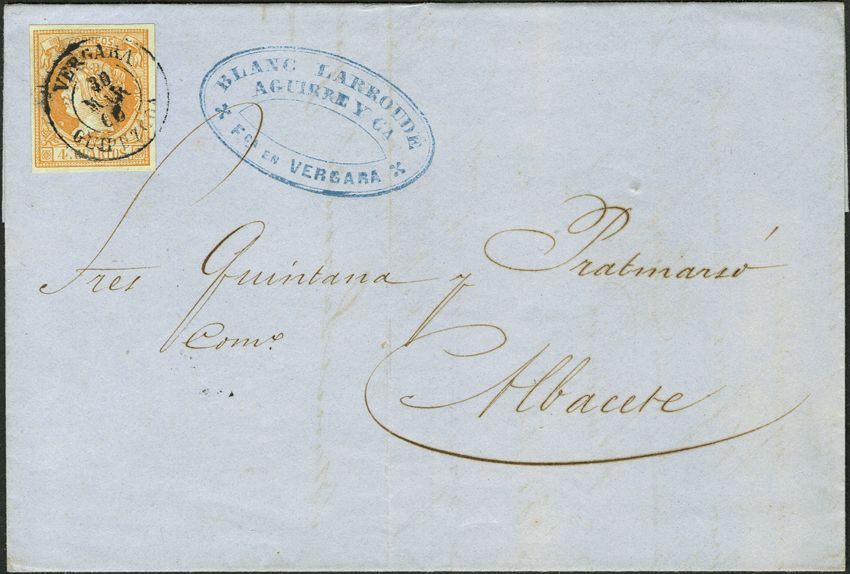 CORREOS
4 CUARTOS
VERGARA
30
MAR
60
GUIPUZCOA
BLANC LARROUDÉ
AGUIRRE Y CA
Fca EN VERGARA
Sres Quintana y Pratmarsó
Como
Albacete